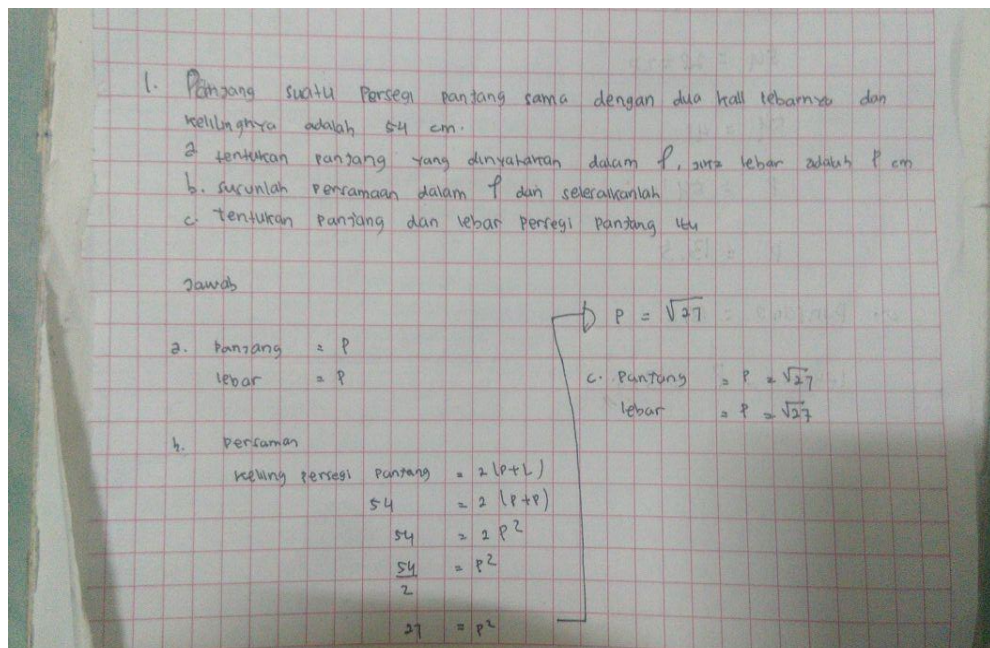 1. Panjang suatu Persegi panjang sama dengan dua kali lebarnya dan
kelilingnya adalah 54 cm.
a tentukan panjang yang dinyatakan dalam P, jika lebar adalah P cm
b. susunlah persamaan dalam P dan selesaikanlah
c. tentukan panjang dan lebar persegi panjang itu
Jawab
a. Panjang = P
lebar = P
b. persaman
keliling persegi panjang = 2 (P+L)
54 = 2 (P+P)
54 = 2 P²
54/2 = P²
27 = P²
P = √27
c. panjang = P = √27
lebar = P = √27